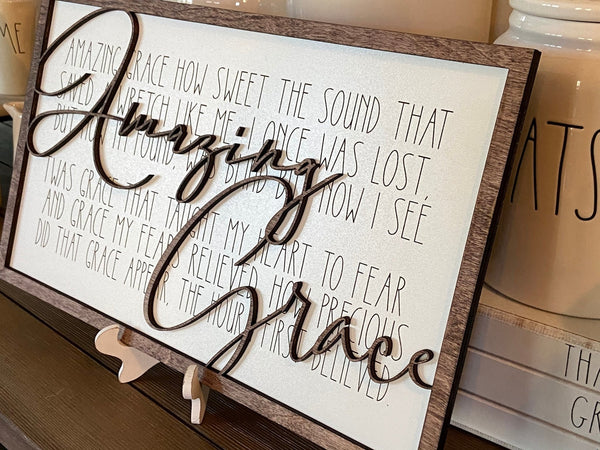 AMAZING GRACE HOW SWEET THE SOUND THAT
SAVED A WRETCH LIKE ME I ONCE WAS LOST
BUT FOUND, WAS BLIND NOW I SEE
'TWAS GRACE THAT TAUGHT MY HEART TO FEAR
AND GRACE MY FEARS RELIEVED HOW PRECIOUS
DID THAT GRACE APPEAR, THE HOUR I FIRST BELIEVED.
Amazing
Grace
ME
ATS
THA
GR